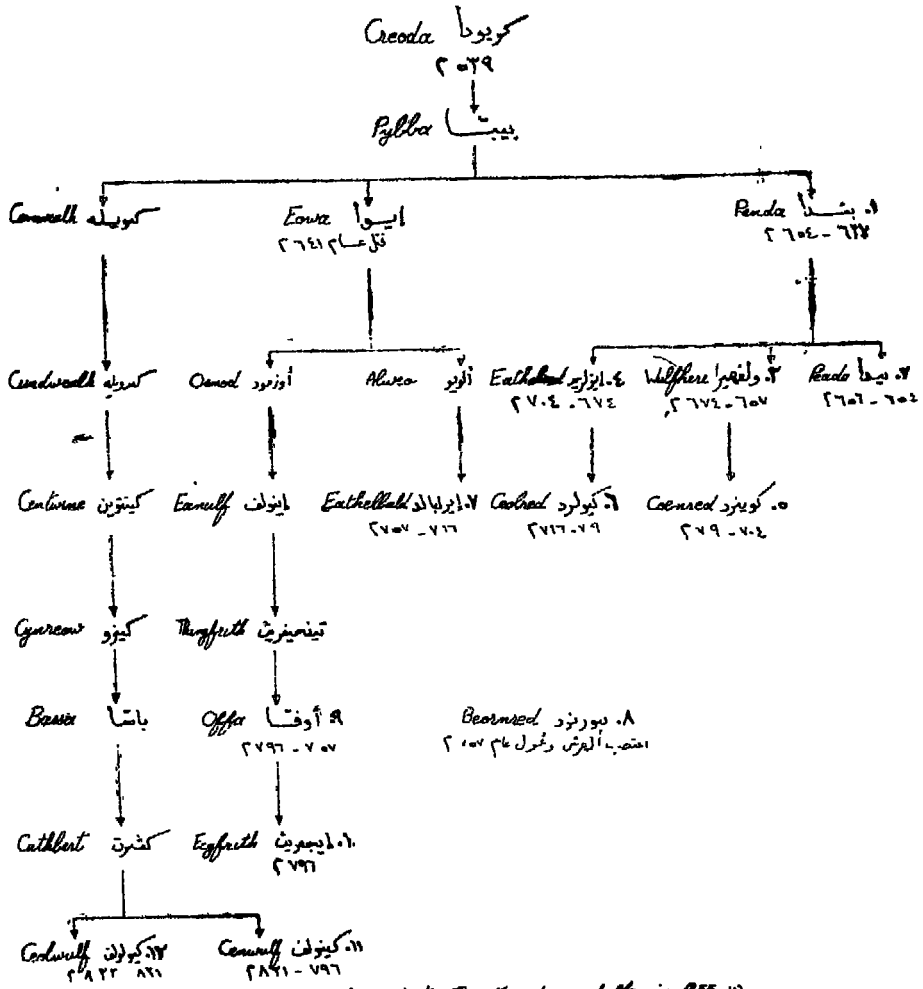 Creoda كريودا
٥٣٩م
Pybba بيبـا
Cenwealh كنويله
Eowa إيـوا
قتل عام ٦٤١م
١. بنـدا Penda
٦٣٢ - ٦٥٤م
Cundwealh كندويله
Osmod أوزمود
Alweo ألويو
٤. ايزلريد Eathelred
٦٧٤ - ٧٠٤م
٣. ولفهيرا Wulfhere
٦٥٧ - ٦٧٤م
٢. بيدا Peada
٦٥٤ - ٦٥٦م
Centwine كينتوين
Eanulf اينولف
Eathelbald ٧. إيزلبالد
٧١٦ - ٧٥٧م
Ceolred ٦. كيولرد
٧٠٩ - ٧١٦م
Coenred ٥. كوينرد
٧٠٤ - ٧٠٩م
Cynreow كينرو
Thingfrith
Bassa باسـا
Offa ٩. أوفـا
٧٥٧ - ٧٩٦م
Beornred ٨. بيورنرد
اغتصب العرش وعزل عام ٧٥٧م
Cuthbert كثبرت
Ecgfrith ١٠. ايجفريث
٧٩٦م
Ceolwulf ١٢. كيولولف
٨٢١ ٨٢٣م
Cenwulf ١١. كينولف
٧٩٦ - ٨٢١م